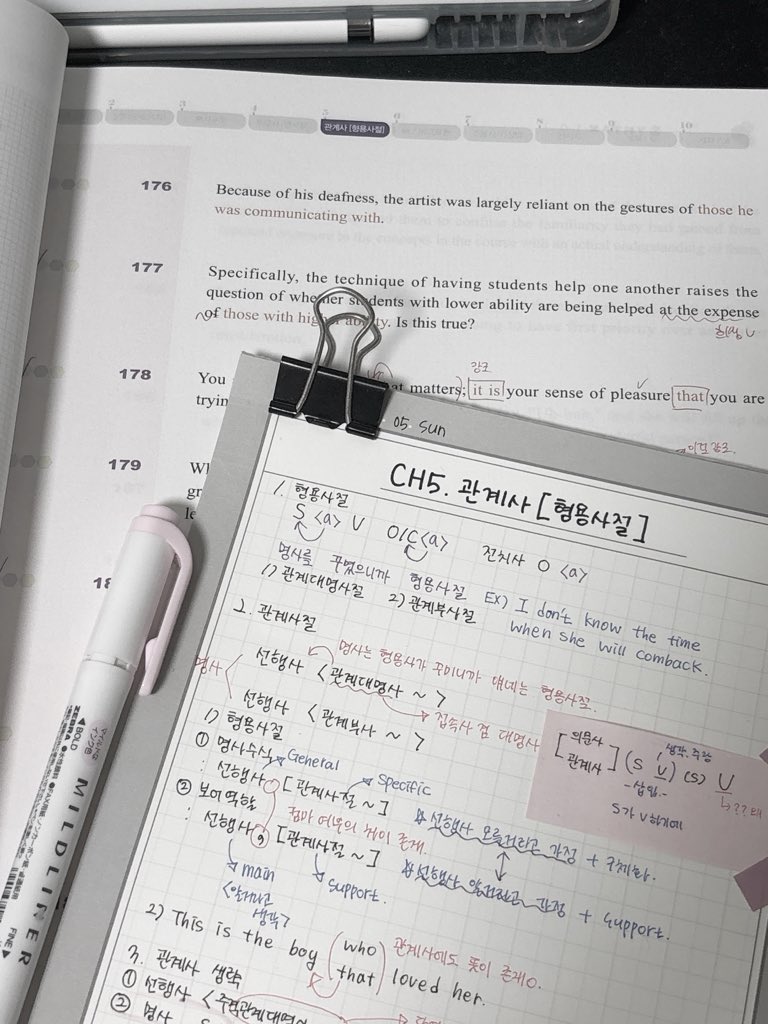 2
3
4
5
6
7
8
9
10
관계사 [형용사절]
176
Because of his deafness, the artist was largely reliant on the gestures of those he
was communicating with.
177
Specifically, the technique of having students help one another raises the
question of whether students with lower ability are being helped at the expense
of those with higher ability. Is this true?
희생
178
강조
You at matters; it is your sense of pleasure that you are
tryin
이걸 강조.
179
Wh
gr
le
18
05. Sun
CH5. 관계사 [형용사절]
1. 형용사절
S <a> V O/C <a> 전치사 O <a>
명사를 꾸몄으니까 형용사절
1) 관계대명사절 2) 관계부사절 EX) I don't know the time
when she will comback.
2. 관계사절
명사는 형용사가 꾸미니까 얘네는 형용사절.
명사
선행사 <관계대명사 ~>
접속사 겸 대명사
선행사 <관계부사 ~>
1) 형용사절
① 명사수식 General
: 선행사 [관계사절 ~] Specific
콤마 여부의 차이 존재.
선행사 모를거라고 가정 + 구체화.
② 보어역할
: 선행사, [관계사절 ~]
선행사 알거라고 가정 + support.
main
support.
<알거라고
생각>
[의문사
관계사] (S V) (S) V
생각, 주장
-삽입-
S가 V하기에
2) This is the boy (who
that) loved her.
관계사에도 뜻이 존재O.
3. 관계사 생략
① 선행사 <주격관계대명사
② 명사 S
MILDLINER
ZEBRA
BOLD
FINE